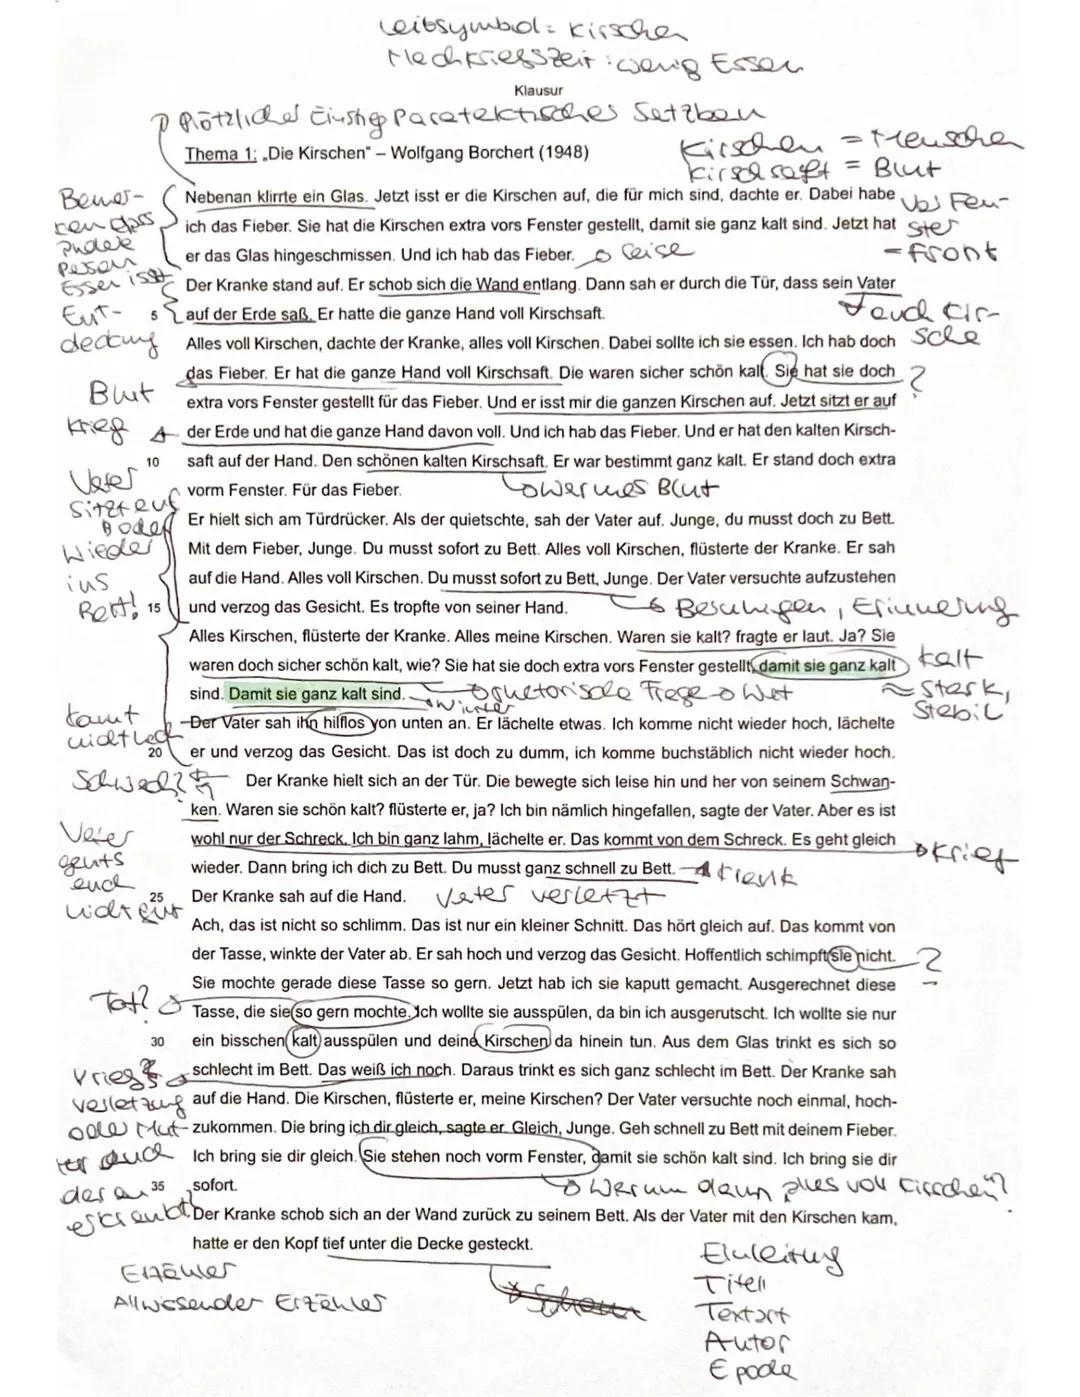 Leitsymbol: Kirschen
Nachkriegszeit: wenig Essen
Klausur
Plötzlicher Einstieg Paratektisches Satzbau
Thema 1: „Die Kirschen" – Wolfgang Borchert (1948)
Kirschen = Menschen
Kirschsaft = Blut
Nebenan klirrte ein Glas. Jetzt isst er die Kirschen auf, die für mich sind, dachte er. Dabei habe
ich das Fieber. Sie hat die Kirschen extra vors Fenster gestellt, damit sie ganz kalt sind. Jetzt hat
er das Glas hingeschmissen. Und ich hab das Fieber.
Vos Fen-
ster
= Front
Der Kranke stand auf. Er schob sich die Wand entlang. Dann sah er durch die Tür, dass sein Vater
5 auf der Erde saß. Er hatte die ganze Hand voll Kirschsaft.
Ent-
deckung
auch Kir-
sche
Alles voll Kirschen, dachte der Kranke, alles voll Kirschen. Dabei sollte ich sie essen. Ich hab doch
das Fieber. Er hat die ganze Hand voll Kirschsaft. Die waren sicher schön kalt. Sie hat sie doch ?
extra vors Fenster gestellt für das Fieber. Und er isst mir die ganzen Kirschen auf. Jetzt sitzt er auf
der Erde und hat die ganze Hand davon voll. Und ich hab das Fieber. Und er hat den kalten Kirsch-
10 saft auf der Hand. Den schönen kalten Kirschsaft. Er war bestimmt ganz kalt. Er stand doch extra
vorm Fenster. Für das Fieber.
Blut
Krieg
warmes Blut
Vater
sitzt auf
Boden
Wieder
ins
Bett!
Er hielt sich am Türdrücker. Als der quietschte, sah der Vater auf. Junge, du musst doch zu Bett.
Mit dem Fieber, Junge. Du musst sofort zu Bett. Alles voll Kirschen, flüsterte der Kranke. Er sah
auf die Hand. Alles voll Kirschen. Du musst sofort zu Bett, Junge. Der Vater versuchte aufzustehen
15 und verzog das Gesicht. Es tropfte von seiner Hand.
Erinnerung
Alles Kirschen, flüsterte der Kranke. Alles meine Kirschen. Waren sie kalt? fragte er laut. Ja? Sie
waren doch sicher schön kalt, wie? Sie hat sie doch extra vors Fenster gestellt, damit sie ganz kalt
sind. Damit sie ganz kalt sind.
kalt
≈ stark,
stabil
Winter
Der Vater sah ihn hilflos von unten an. Er lächelte etwas. Ich komme nicht wieder hoch, lächelte
20 er und verzog das Gesicht. Das ist doch zu dumm, ich komme buchstäblich nicht wieder hoch.
Schwach?
Der Kranke hielt sich an der Tür. Die bewegte sich leise hin und her von seinem Schwan-
ken. Waren sie schön kalt? flüsterte er, ja? Ich bin nämlich hingefallen, sagte der Vater. Aber es ist
wohl nur der Schreck. Ich bin ganz lahm, lächelte er. Das kommt von dem Schreck. Es geht gleich
wieder. Dann bring ich dich zu Bett. Du musst ganz schnell zu Bett.
Krieg
krank
Vater
gehts
auch
nicht gut
25 Der Kranke sah auf die Hand.
Vater verletzt
Ach, das ist nicht so schlimm. Das ist nur ein kleiner Schnitt. Das hört gleich auf. Das kommt von
der Tasse, winkte der Vater ab. Er sah hoch und verzog das Gesicht. Hoffentlich schimpft sie nicht. ?
Sie mochte gerade diese Tasse so gern. Jetzt hab ich sie kaputt gemacht. Ausgerechnet diese
Tot?
Tasse, die sie so gern mochte. Ich wollte sie ausspülen, da bin ich ausgerutscht. Ich wollte sie nur
30 ein bisschen kalt ausspülen und deine Kirschen da hinein tun. Aus dem Glas trinkt es sich so
schlecht im Bett. Das weiß ich noch. Daraus trinkt es sich ganz schlecht im Bett. Der Kranke sah
auf die Hand. Die Kirschen, flüsterte er, meine Kirschen? Der Vater versuchte noch einmal, hoch-
zukommen. Die bring ich dir gleich, sagte er. Gleich, Junge. Geh schnell zu Bett mit deinem Fieber.
Ich bring sie dir gleich. Sie stehen noch vorm Fenster, damit sie schön kalt sind. Ich bring sie dir
35 sofort.
Kriegs-
verletzung
oder Mut-
ter auch
daran
erkrankt
Warum dann alles voll Kirschen?
Der Kranke schob sich an der Wand zurück zu seinem Bett. Als der Vater mit den Kirschen kam,
hatte er den Kopf tief unter die Decke gesteckt.
Erzähler
Allwissender Erzähler
Einleitung
Titel
Textart
Autor
Epoche